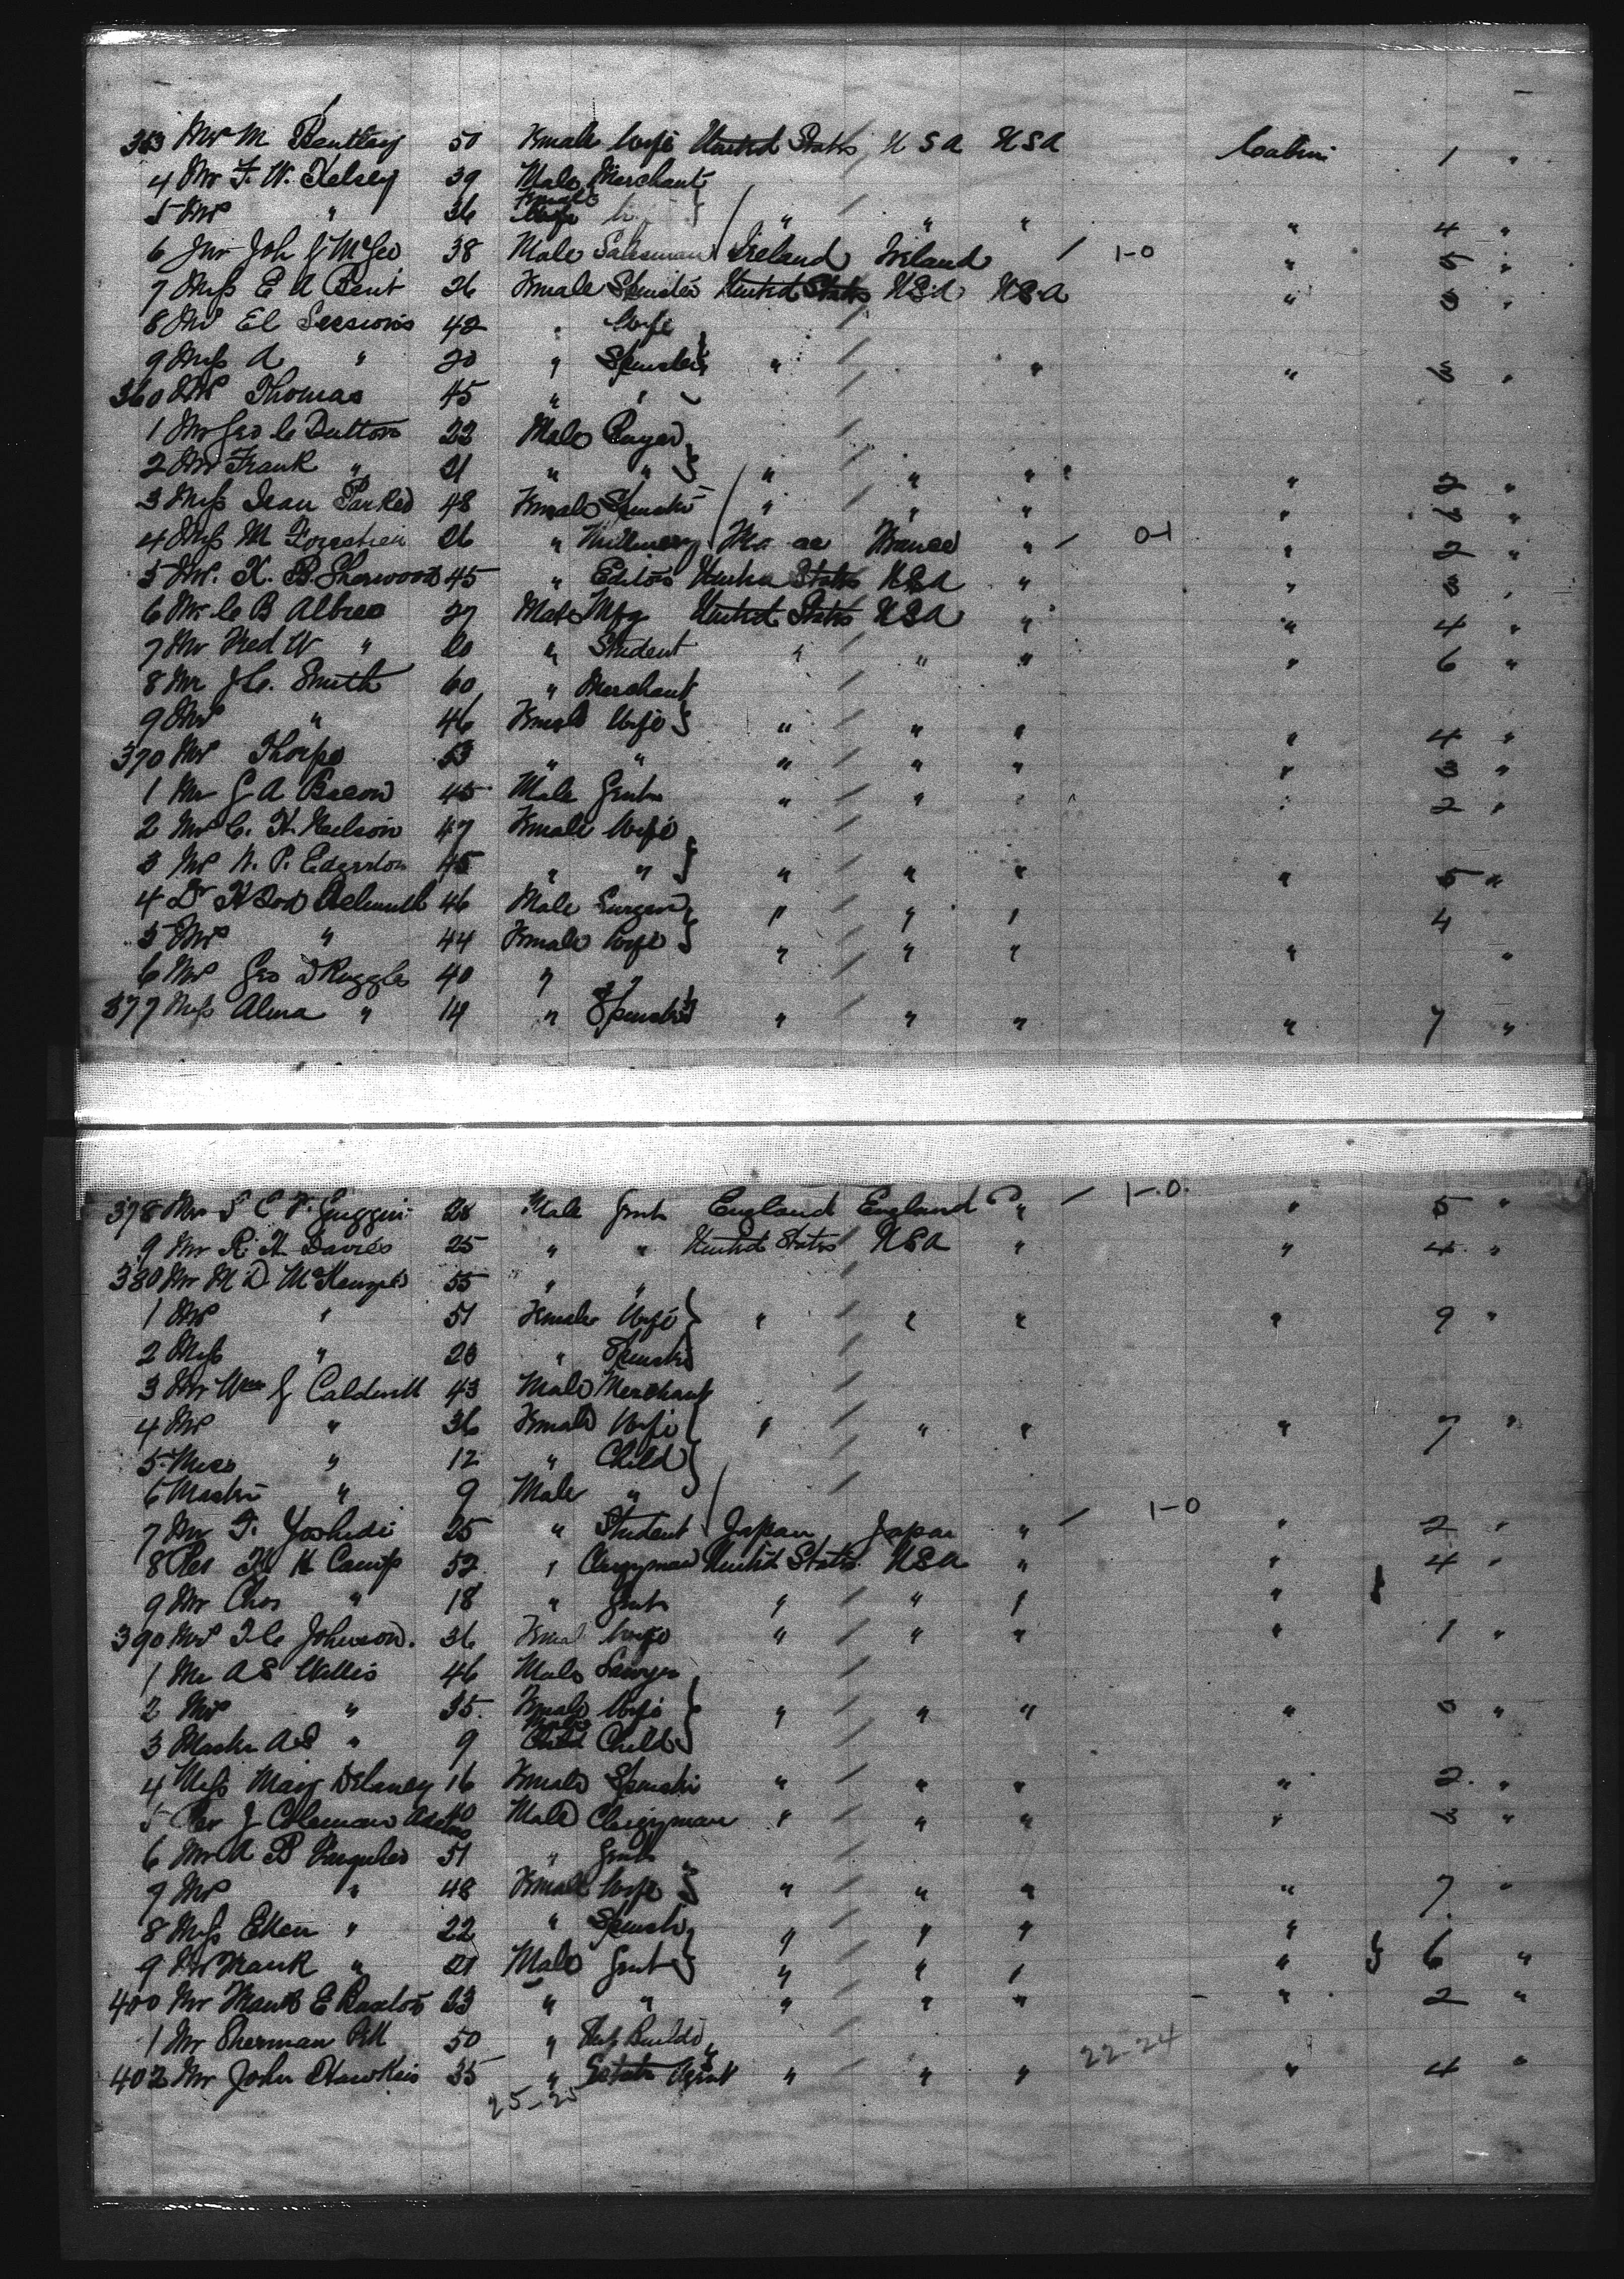 353 Mrs M Bentley 50 Female Wife United States U S A U S A Cabin 1 "
4 Mr F. W. Kelsey 39 Male Merchant
5 Mrs " 36 Female Wife " " " " 4 "
6 Mr Joh G McGeo 38 Male Salesman Ireland Ireland / 1-0 " 5 "
7 Miss E A Bent 26 Female Spinster United States USA USA " 3 "
8 Mrs El Sessions 42 " Wife
9 Miss A " 20 " Spinster " " " 3 "
360 Mrs Thomas 45 " "
1 Mr Geo C Dutton 22 Male Buyer
2 Mr Frank " 21 " " " " " " 2 "
3 Miss Jean Parker 48 Female Spinster " " " 3 "
4 Miss M Forestier 26 " Millinery France " / 0-1 " 2 "
5 Mrs. K. B. Sherwood 45 " Editor United States USA " " 3 "
6 Mr C B Albree 27 Male Mfg United States USA " " 4 "
7 Mr Fred W " 20 " Student " " " " 6 "
8 Mr J C. Smith 60 " Merchant
9 Mrs " 46 Female Wife " " " " 4 "
370 Mrs Thorpe 53 " " " " " " 3 "
1 Mr G A Bacon 45 Male Gent " " " " 2 "
2 Mrs C. H. Nelson 47 Female Wife
3 Mrs W. P. Edgerton 45 " " " " " " 5 "
4 Dr 46 Male Surgeon " " " 4
5 Mrs " 44 Female Wife " " " " "
6 Mrs Geo D Ruggles 40 " "
377 Miss Alma " 14 " Spinster " " " " 7 "
378 Mr 28 Male Gent England England " / 1-0. " 5 "
9 Mr R. H. Davies 25 " " United States USA " " 4 "
380 Mr M D. McKenzie 55 " "
1 Mrs " 51 Female Wife " " " " 9 "
2 Miss " 23 " Spinster
3 Mr Wm G Caldwell 43 Male Merchant
4 Mrs " 36 Female Wife " " " " 7 "
5 Miss " 12 " Child
6 Master " 9 Male "
7 Mr T. Yoshidi 25 " Student Japan Japan " / 1-0 " 2 "
8 Rev H Camp 52 " Clergyman United States USA " " 4 "
9 Mr Chas " 18 " Gent " " " "
390 Mrs Johnson. 36 Female Wife " " " " 1 "
1 Mr A S Willis 46 Male Lawyer
2 Mrs " 35. Female Wife " " " " "
3 Master A S " 9 Male Child Child
4 Miss Mary Delaney 16 Female Spinster " " " " 2. "
5 Rev J Coleman Adams 40 Male Clergyman " " " " 3 "
6 Mr A B 51 " Gent
7 Mrs " 48 Female Wife " " " " 7 "
8 Miss Ellen " 22 " Spinster " " " "
9 Mr Frank " 21 Male Gent " " " " 6 "
400 Mr E 23 " " " " " " 2 "
1 Mr Sherman Pill 50 " 22-24
402 Mr John Hawkins 35 " Estate Agent " " " " 4 "
25-25